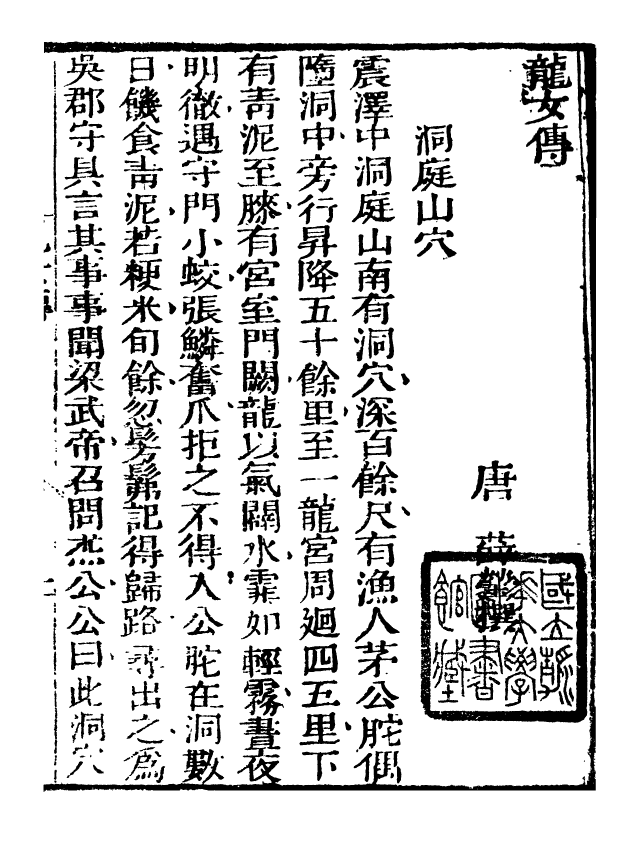 龍女傳
唐 薛 撰
洞庭山穴
震澤中洞庭山南有洞穴深百餘尺有漁人茅公𦙀偶
墮洞中旁行昇降五十餘里至一龍宮周廻四五里下
有靑泥至膝有宮室門闕龍以氣闢水霏如輕霧晝夜
明徹遇守門小蛟張鱗奮爪拒之不得入公𦙀在洞數
日饑食靑泥若粳米旬餘忽髣髴記得歸路尋出之爲
吳郡守具言其事事聞梁武帝召問杰公公曰此洞穴
龍女傳
一
國立 大學 圖書館藏